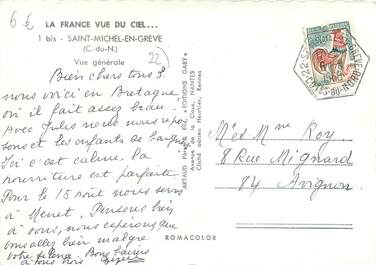 6 €
LA FRANCE VUE DU CIEL...
1 bis - SAINT-MICHEL-EN-GREVE
(C.-du-N.)
Vue générale
22
Bien chers tous 3.
nous voici en Bretagne
où il fait assez beau!
Avec Jules nous nous repo
sons et les enfants se
Ici c'est calme, la
nourriture est parfaite.
Pour le 15 Août nous serons
à Menet. Pensons bien
à vous, nous espérons que
vous allez bien malgré
votre silence. Bons baisers
à tous trois
ARTAUD Père et Fils, ÉDITIONS GABY
Avenue de la Close, NANTES
Cliché aérien Heurtier, Rennes
M et Mme Roy
8 Rue Mignard
84 Avignon
ROMACOLOR